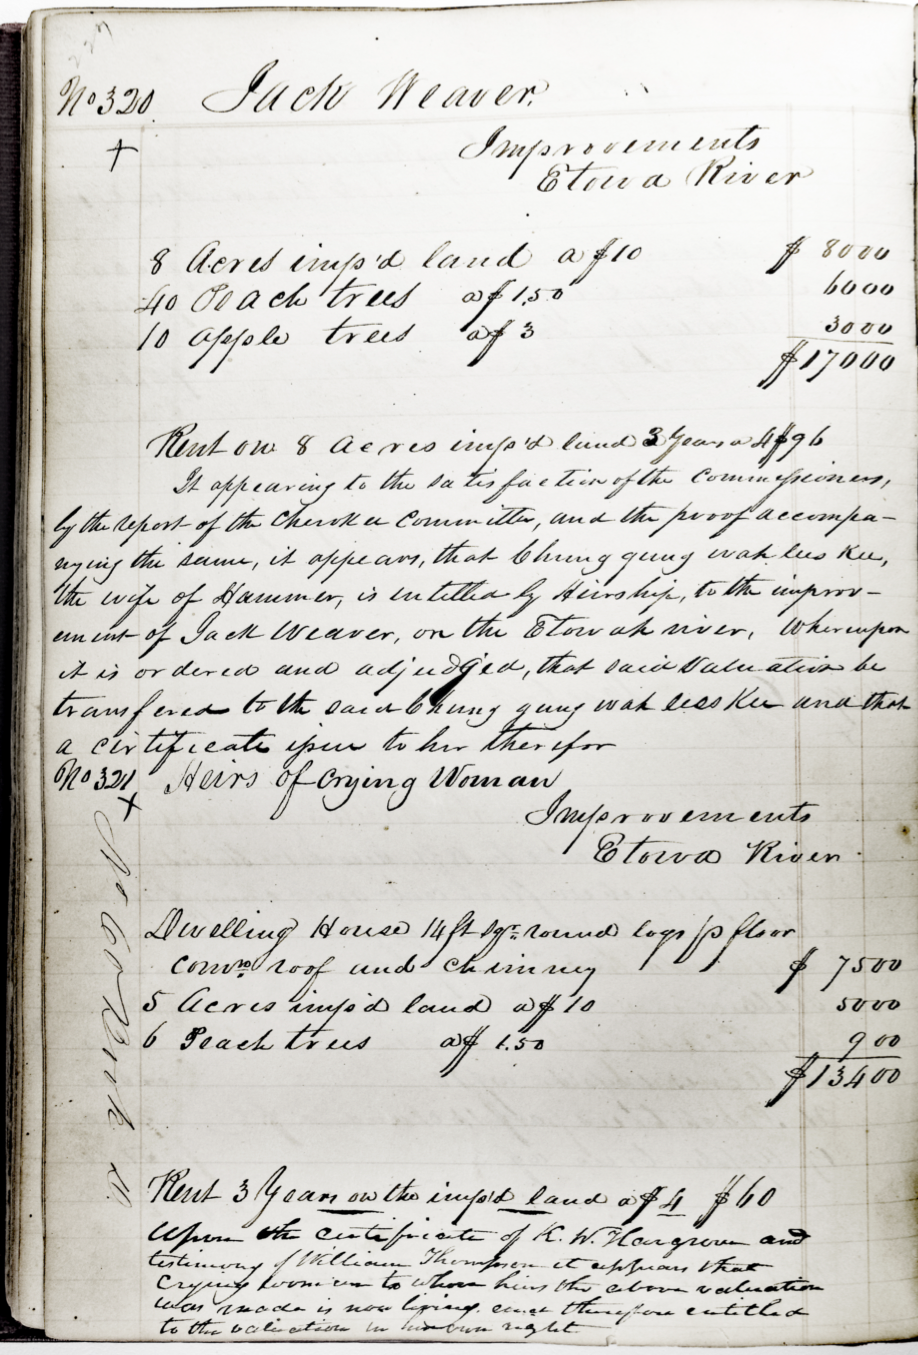 No 320 Jack Weaver.
+
Improvements
Etowa River
8 Acres imp'd land a $10 $ 80 00
40 Peach trees a $ 1.50 60 00
10 apple trees a $ 3 30 00
$ 170 00
Rent on 8 Acres imp'd land 3 Years a 4 $ 96
It appearing to the satisfaction of the commissioners,
by the report of the Cherokee committee, and the proof accompa-
nying the same, it appears, that Chung gung wah lees kee,
the wife of Hammer, is entitled by Heirship, to the improv-
ement of Jack Weaver, on the Etowah river, Whereupon
it is ordered and adjudged, that said Valuation be
transfered to the said Chung gung wah less Kee and that
a certificate issue to her therefor
No 321 Heirs of Crying Woman
+
Improvements
Etowa River
Dwelling House 14 ft sqr. round logs p floor
comn. roof and chimney $ 75 00
5 Acres imp'd land a $ 10 50 00
6 Peach trees a $ 1.50 9 00
$ 134 00
Rent 3 Years on the imp'd land a $ 4 $ 60
Upon the certificate of K. W. Hargrove and
testimony of William Thompson it appears that
Crying woman to whose heirs the above valuation
was made is now living therefore entitled
to the valuation in her own right